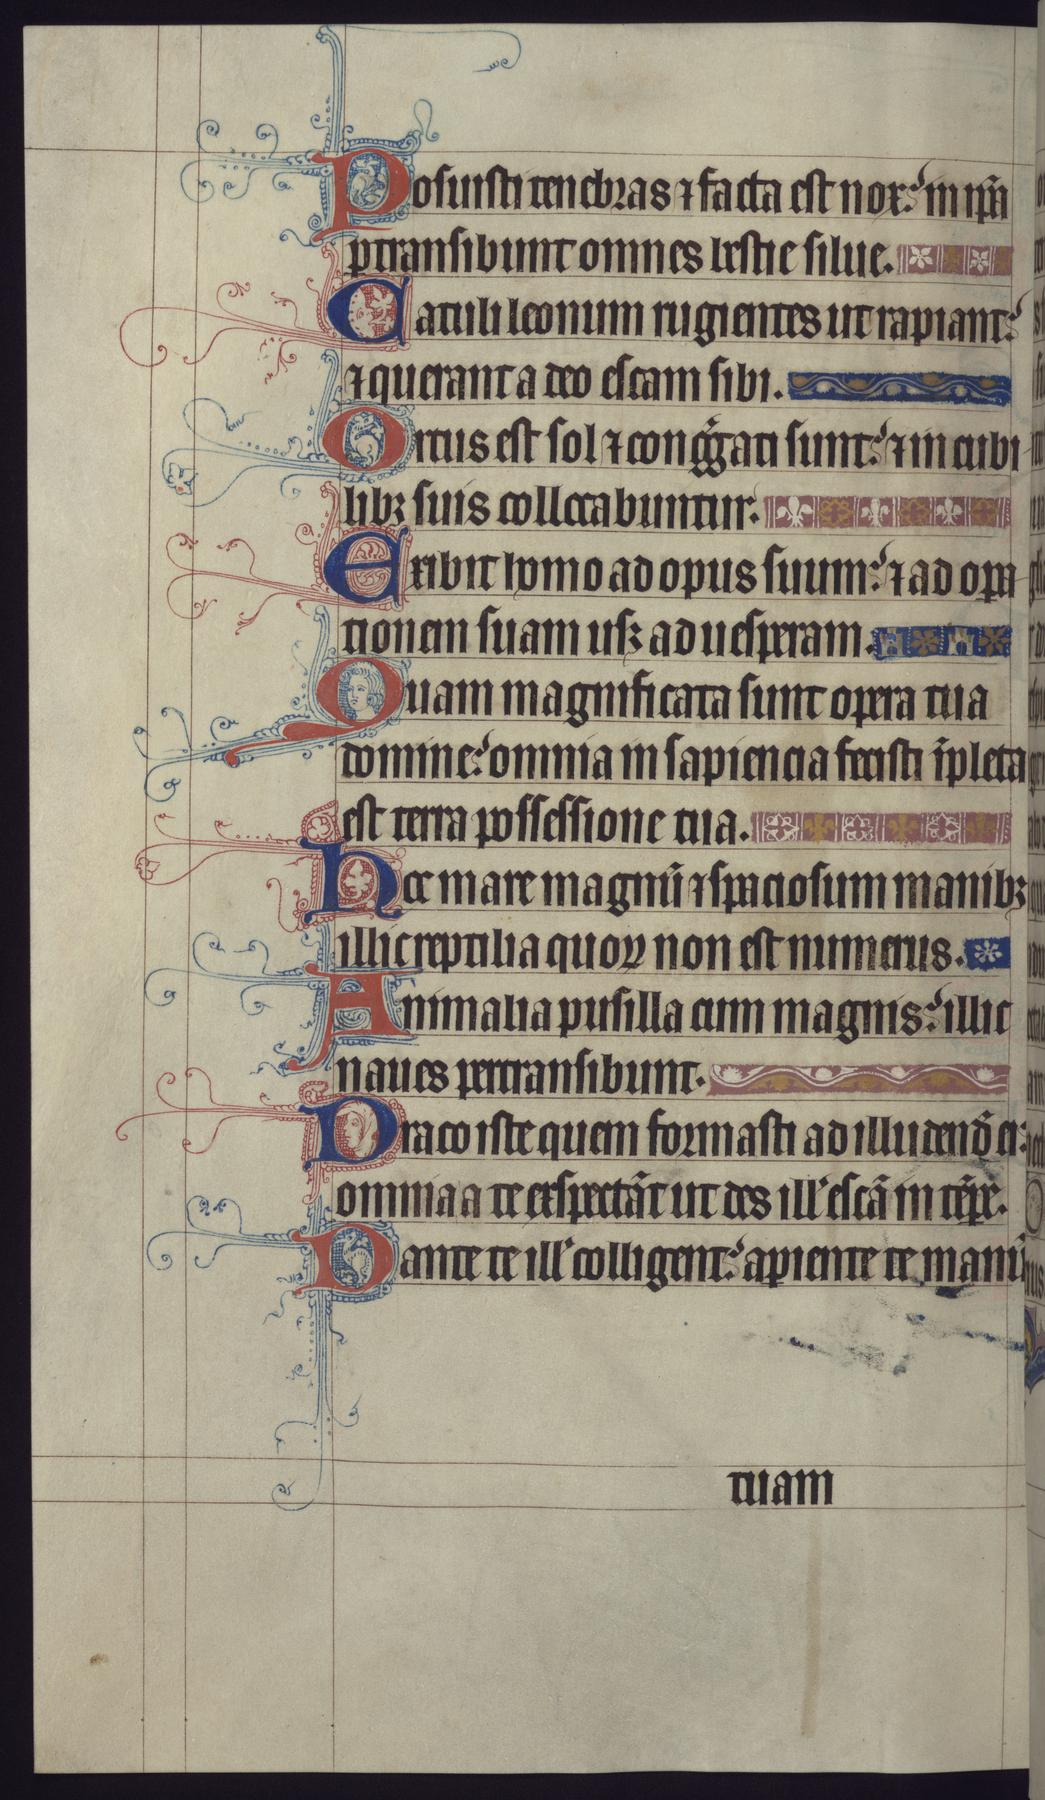 Posuisti tenebras ⁊ facta est nox: in ip̃a
ꝑtransibunt omnes bestie silue.
Catuli leonum rugientes ut rapiant:
⁊ querant a deo escam sibi.
Ortus est sol ⁊ congͣgati sunt: ⁊ in cubi
libꝫ suis collocabuntur.
Exibit homo ad opus suum: ⁊ ad oꝑa
tionem suam usqꝫ ad uesperam.
Quam magnificata sunt opera tua
domine: omnia in sapiencia fecisti īpleta
est terra possessione tua.
Hoc mare magnū ⁊ spaciosum manibꝫ
illic reptilia quoꝝ non est numerus.
Animalia pusilla cum magnis: illic
naues pertransibunt.
Draco iste quem formasti ad illudend̄ ei:
omnia a te exspectāt ut des ill' escā in tēꝑe.
Dante te ill' colligent: aꝑiente te manū
tuam